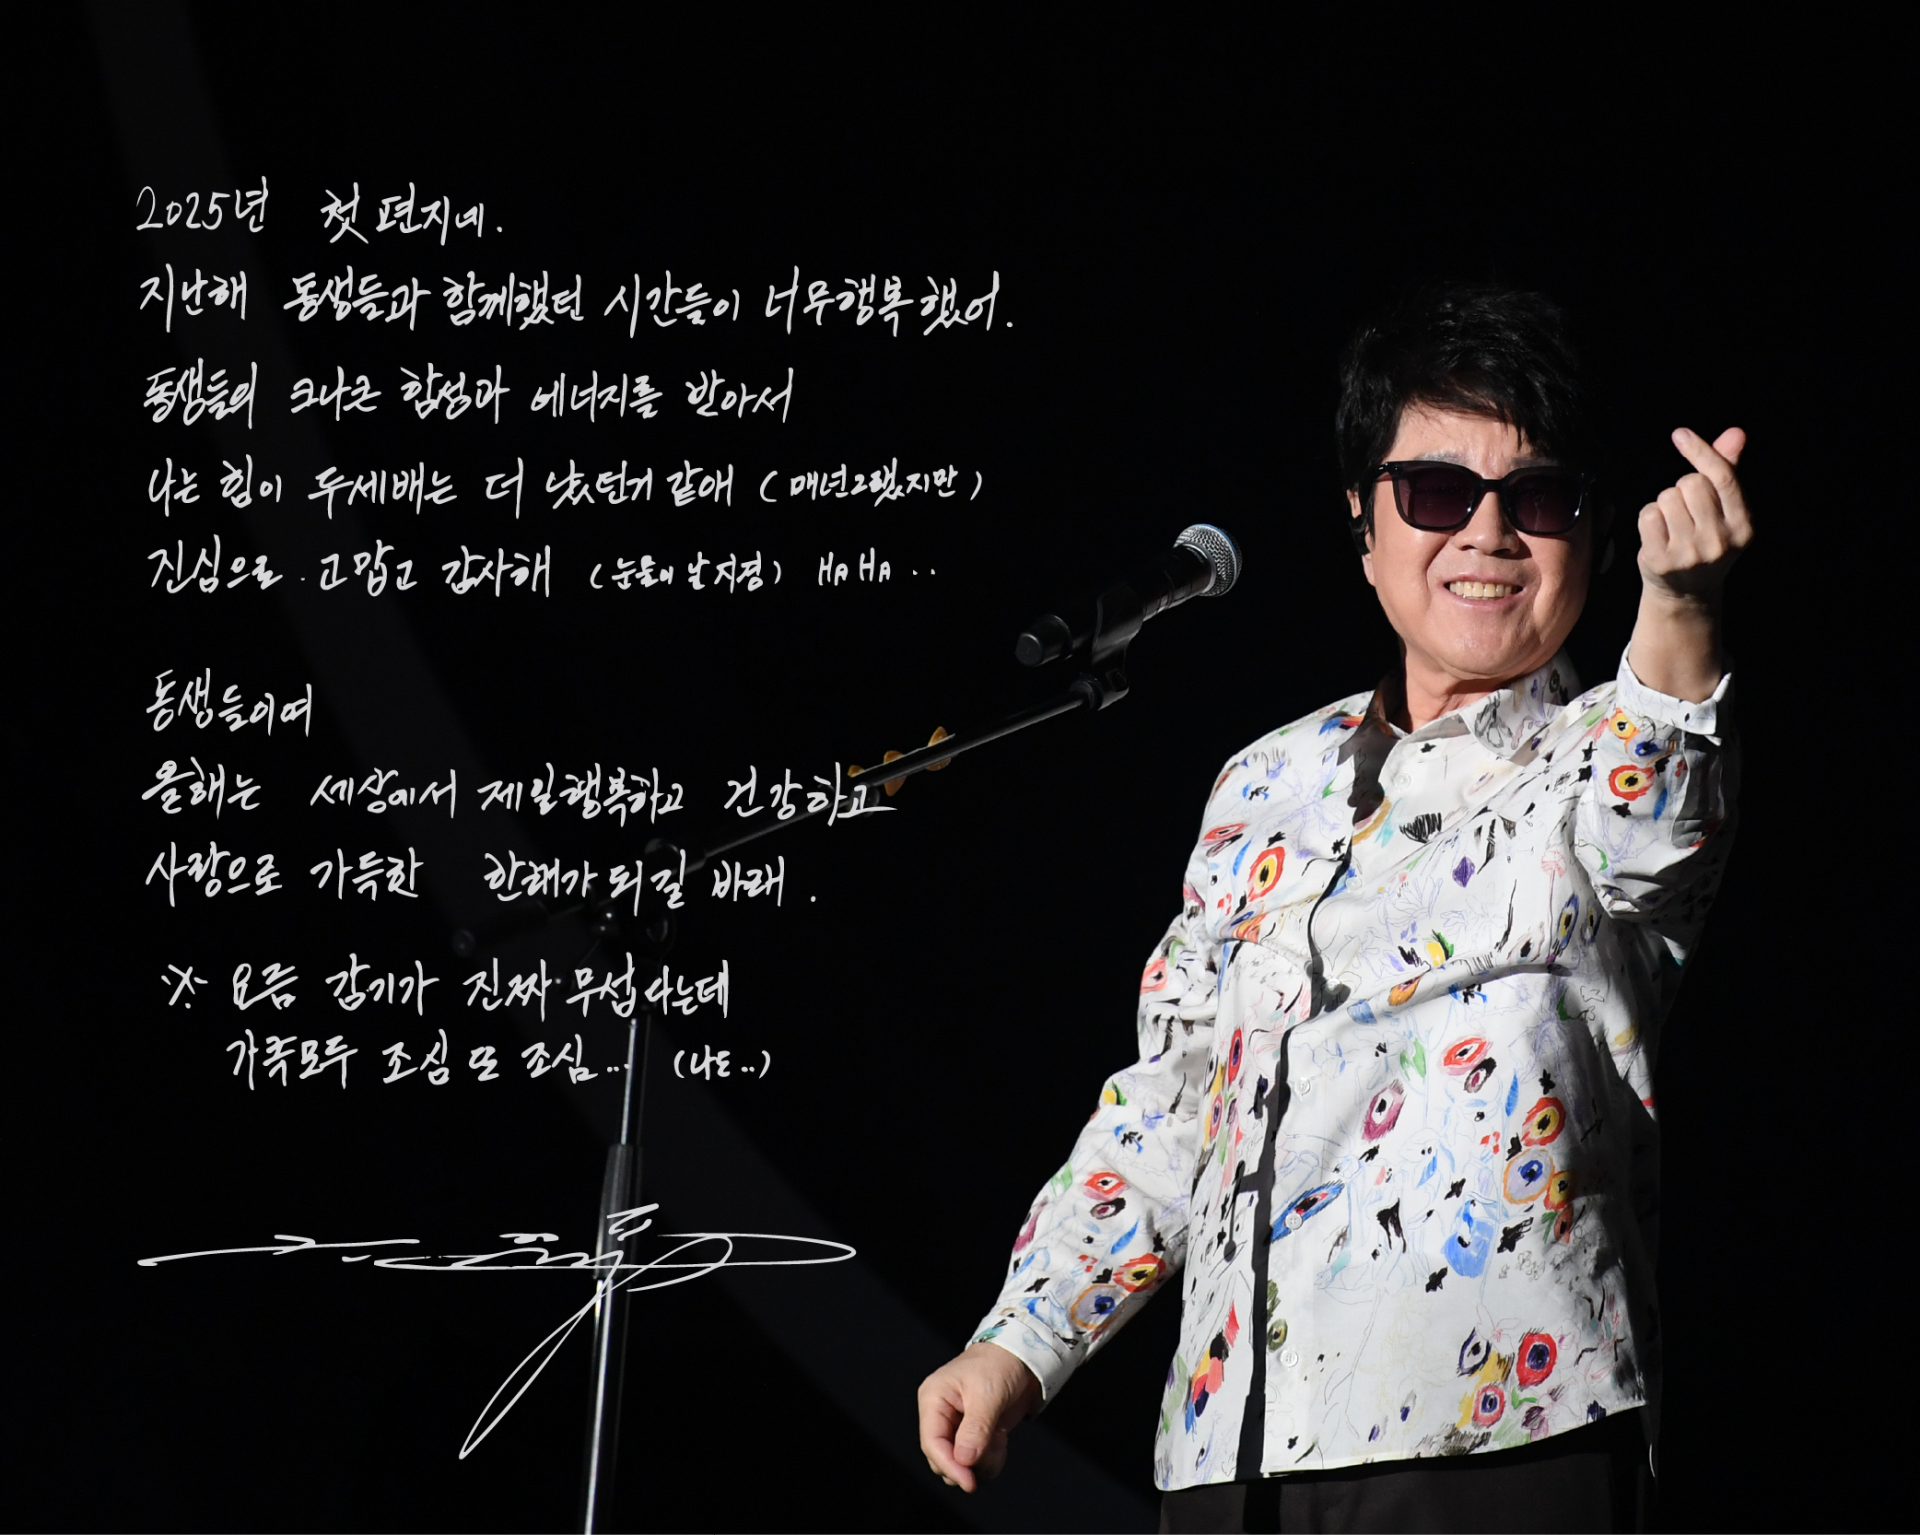 2025년 첫 편지네.
지난해 동생들과 함께했던 시간들이 너무 행복했어.
동생들의 크나큰 함성과 에너지를 받아서
나는 힘이 두세배는 더 났던거 같애 (매년 그랬지만)
진심으로 고맙고 감사해 (눈물이 날 지경) HA HA ..
동생들이여
올해는 세상에서 제일 행복하고 건강하고
사랑으로 가득한 한해가 되길 바래.
※ 요즘 감기가 진짜 무섭다는데
가족모두 조심 또 조심... (나도..)